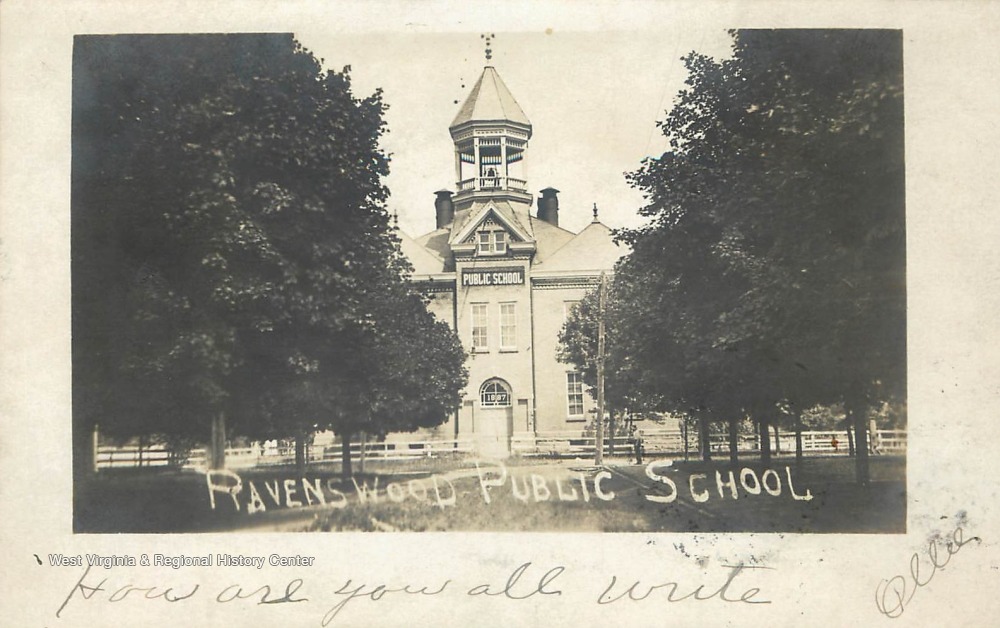 PUBLIC SCHOOL
1887
RAVENSWOOD PUBLIC SCHOOL
West Virginia & Regional History Center
How are you all write
Ollie